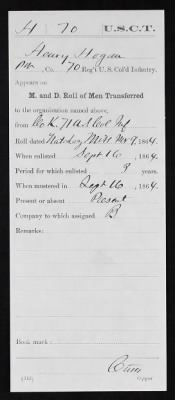 H 70 U.S.C.T.
Henry Hogan
Pvt, Co. 70 Reg't U.S. Col'd Infantry.
Appears on
M. and D. Roll of Men Transferred
to the organization named above,
from Co K. Col Inf
Roll dated Natchez Miss Nov 9, 1864.
When enlisted Sept 16, 1864.
Period for which enlisted 3 years.
When mustered in Sept 16, 1864.
Present or absent Present
Company to which assigned B
Remarks:
Book mark:
Copyist.